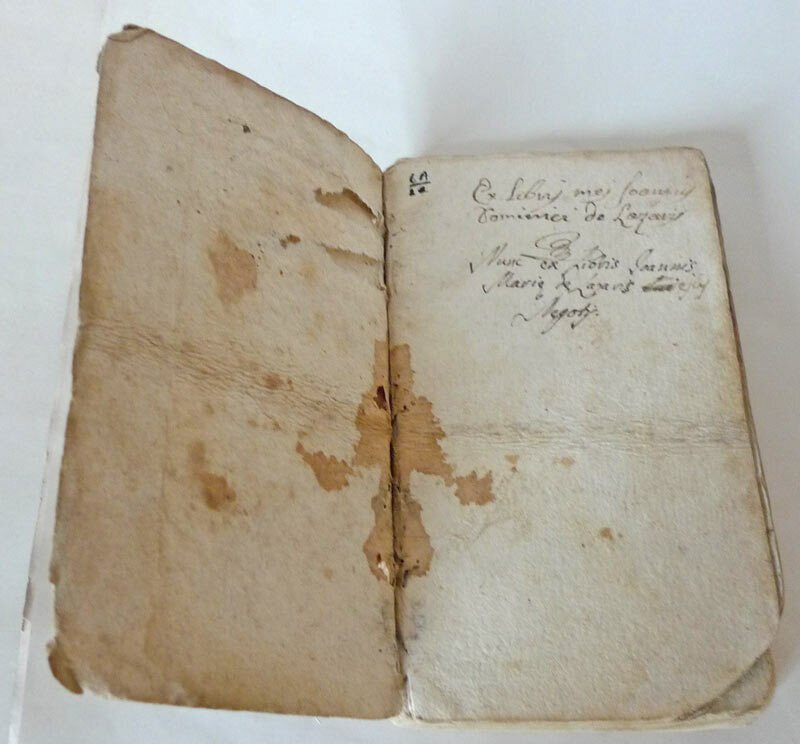 Ex Libris mei Joannis
Dominici de Lazaris
Nunc ex Libris Joannis
Marię de Lazaris ejus
Nepotis.